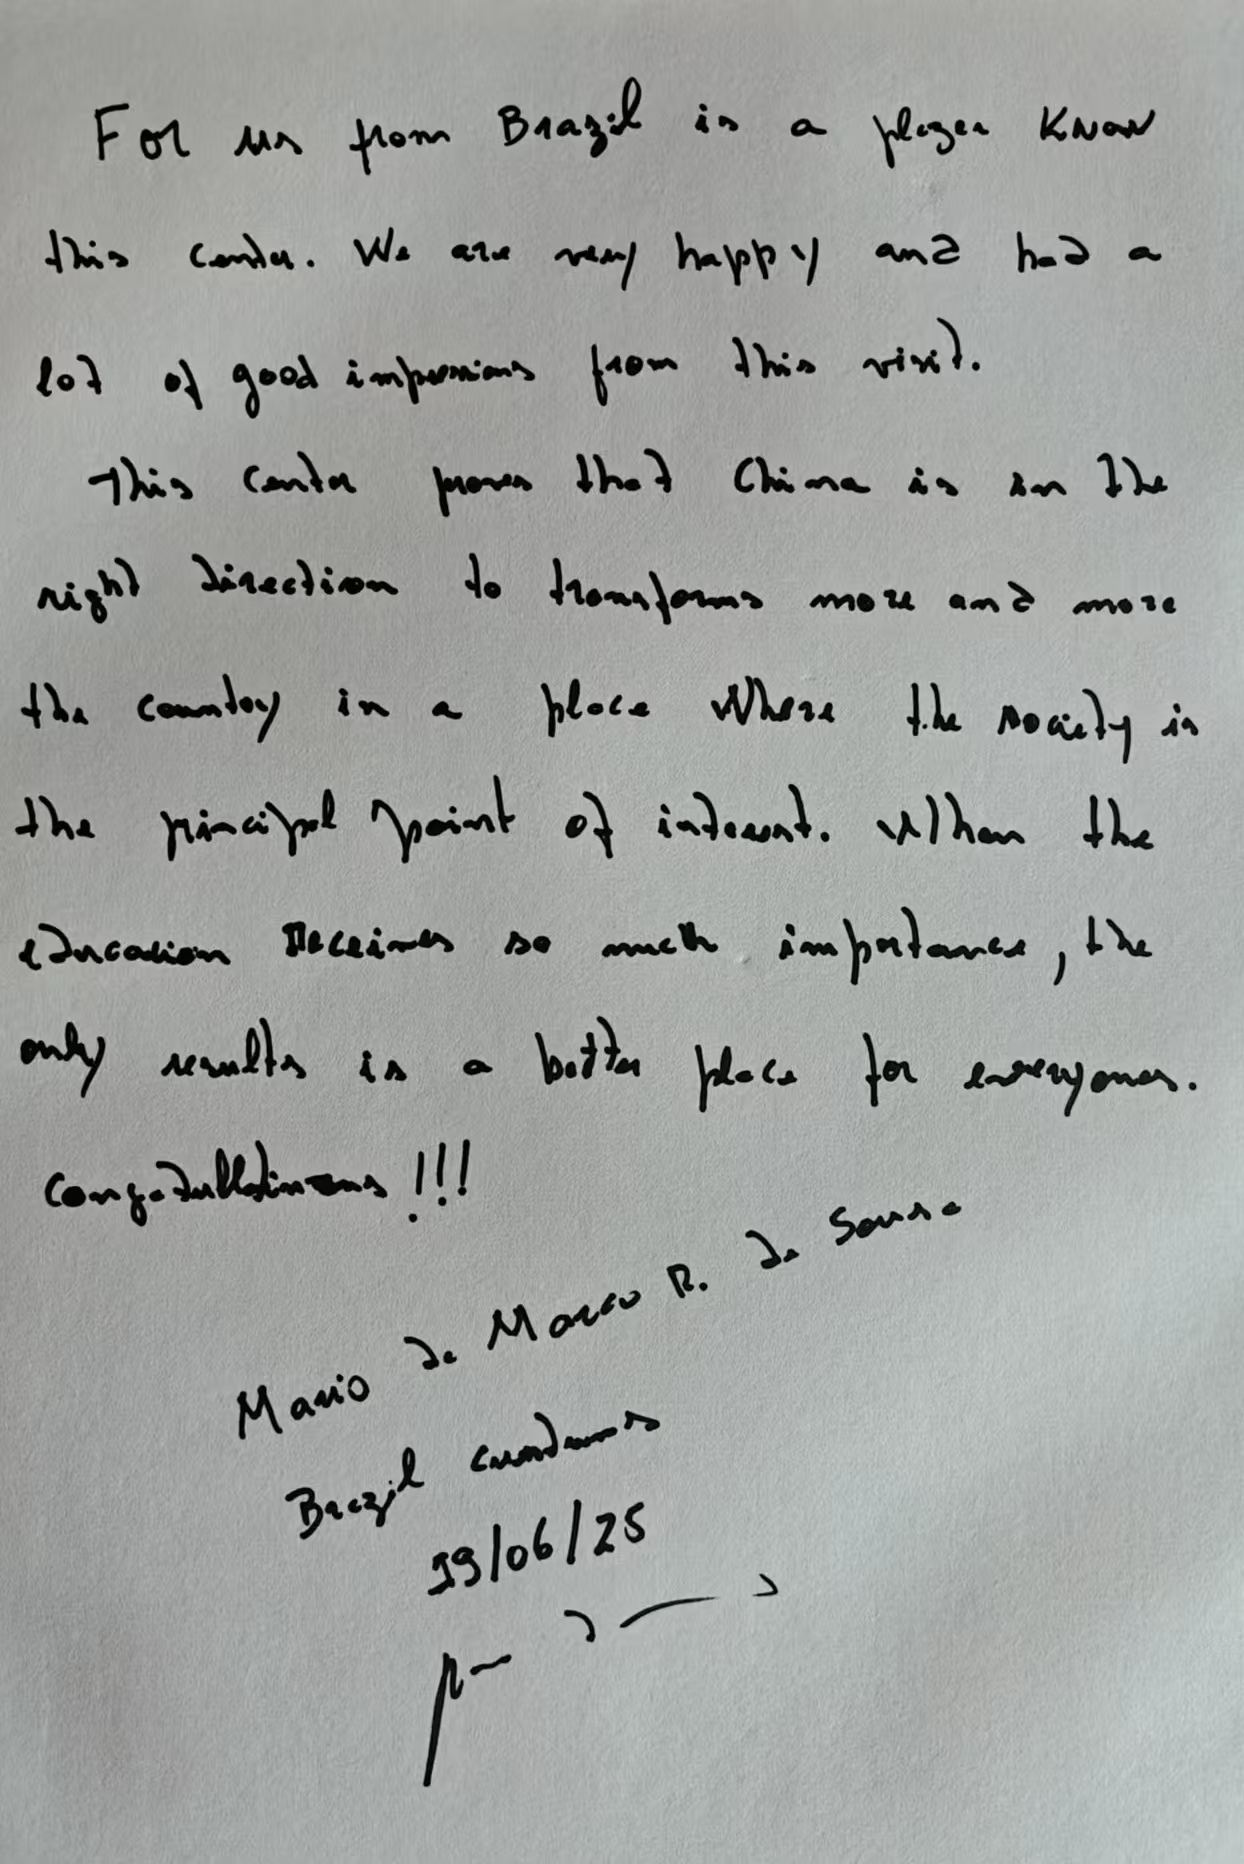 For us from Brazil is a plezer know
this center. We are very happy and had a
lot of good impressions from this visit.
This center proves that China is in the
right direction to transforms more and more
the country in a place where the society is
the principal point of interest. When the
education receives so much importance, the
only results is a better place for everyones.
Congratullations !!!
Mario de Marco R. de Sousa
Brazil
19/06/25